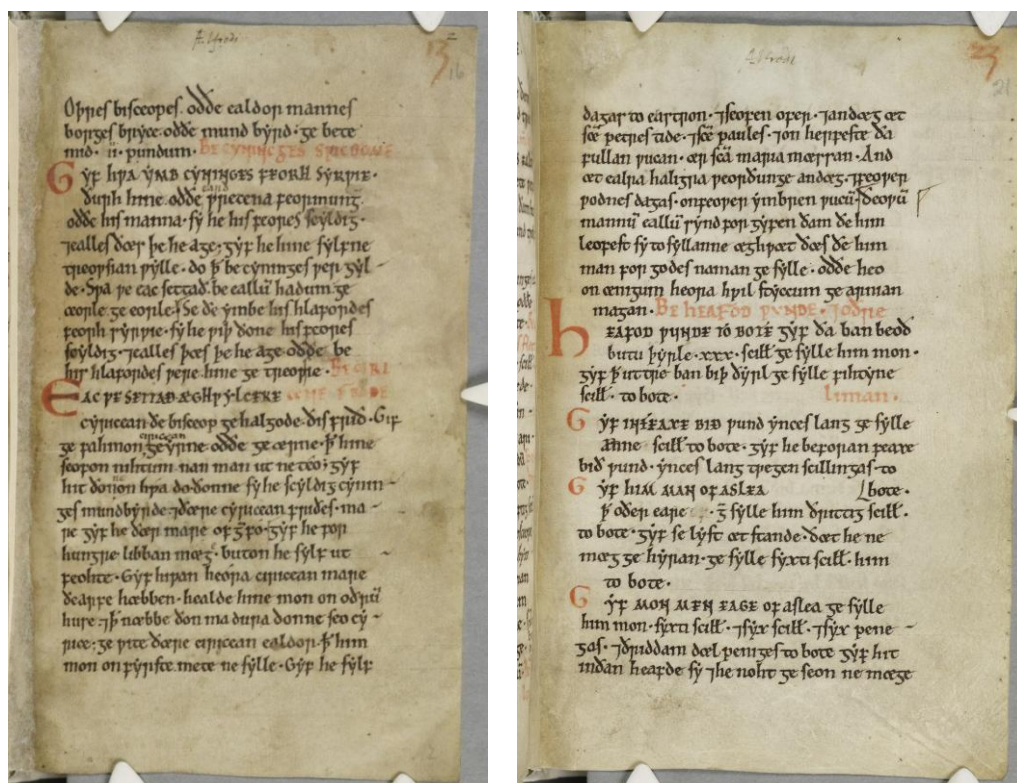 Ælfredi
16
Oþres bisceopes. oððe ealdor mannes
borges bryce. oððe mund byrd. ge bete
mid. ii. pundum. BE CYNINGES SƿICDOME
Gyf hƿa ymb cyninges feorh syrƿie.
ðurh hine. oððe ƿrecena feormung.
oððe his manna. sy he his feores scyldig.
⁊ealles ðæs þe he age. gyf he hine sylfne
treoƿsian ƿylle. do þ̄ be cyninges ƿergyl
de. Sƿa ƿe eac settað. be eallū hadum. ge
ceorle ge eorle. Se ðe ymbe his hlafordes
feorh syrƿie. sy he ƿiþ ðone his feores
scyldig. ⁊ealles þæs þe he age. oððe be
his hlafordes ƿere hine ge treoƿie. BE CIRI
EAC ƿE SETTAÐ ÆGHƿYLCERE CENE FRIÐE
cyricean ðe bisceop ge halgode. ðis frið. Gif
ge fahmon cyricean ge yrne. oððe ge ærne. þ̄ hine
seofon nihtum nan man ut ne teo. gyf
hit ðonne hƿa do. ðonne sy he scyldig cynin
ges mundbyrde. ⁊ðære cyricean friðes. ma
re gyf he ðær mare of ge fo. gyf he for
hungre libban mæg. buton he sylf ut
feohte. Gyf hiƿan heora ciricean mare
ðearfe hæbben. healde hine mon on oðrū
huse. ⁊þ̄ næbbe ðon ma dura ðonne seo cy
rice. ge ƿite ðære ciricean ealdor. þ̄ him
mon on fyrste mete ne sylle. Gyf he sylf
Ælfredi
23
21
dagas to eastron. ⁊seofen ofer. ⁊an dæg æt
sc̄e petres tide. ⁊sc̄e paules. ⁊on herfeste ða
fullan ƿucan. ær sc̄a maria mæssan. And
æt ealra haligra ƿeorðunge an dæg. ⁊feoƿer
ƿodnes dagas. on feoƿer ymbren ƿucū. ðeoƿū
mannū eallū synd forgyfen ðam ðe him
leofest sy to syllanne æghƿæt ðæs ðe him
man for godes naman ge sylle. oððe heo
on ænigum heora hƿil styccum ge earnian
magan. BE HEAFOD ƿUNDE. ⁊oðre
HEAFOD ƿUNDE TO BOTE gyf ða ban beoð
butu þyrle. xxx. scill ge sylle him mon.
gyf þ̄ uttre ban biþ ðyrl ge sylle fiftyne
scill. to bote. liman.
Gyf IN FEAXE BIÐ ƿund ynces lang ge sylle
anne scill to bote. gyf he beforan feaxe
bið ƿund. ynces lang tƿegen scillingas to
Gyf HIM MAN OF ASLEA bote.
þ̄ oðer eare ge sylle him ðrittig scill.
to bote. gyf se lyst æt stande. ðæt he ne
mæg ge hyran. ge sylle syxti scill. him
to bote.
Gyf MON MEN EAGE OF aslea ge sylle
him mon. syxti scill. ⁊syx scill. ⁊syx pene
gas. ⁊ðriddam dæl peniges to bote gyf hit
in ðan heafde sy ⁊he noht ge seon ne mæge